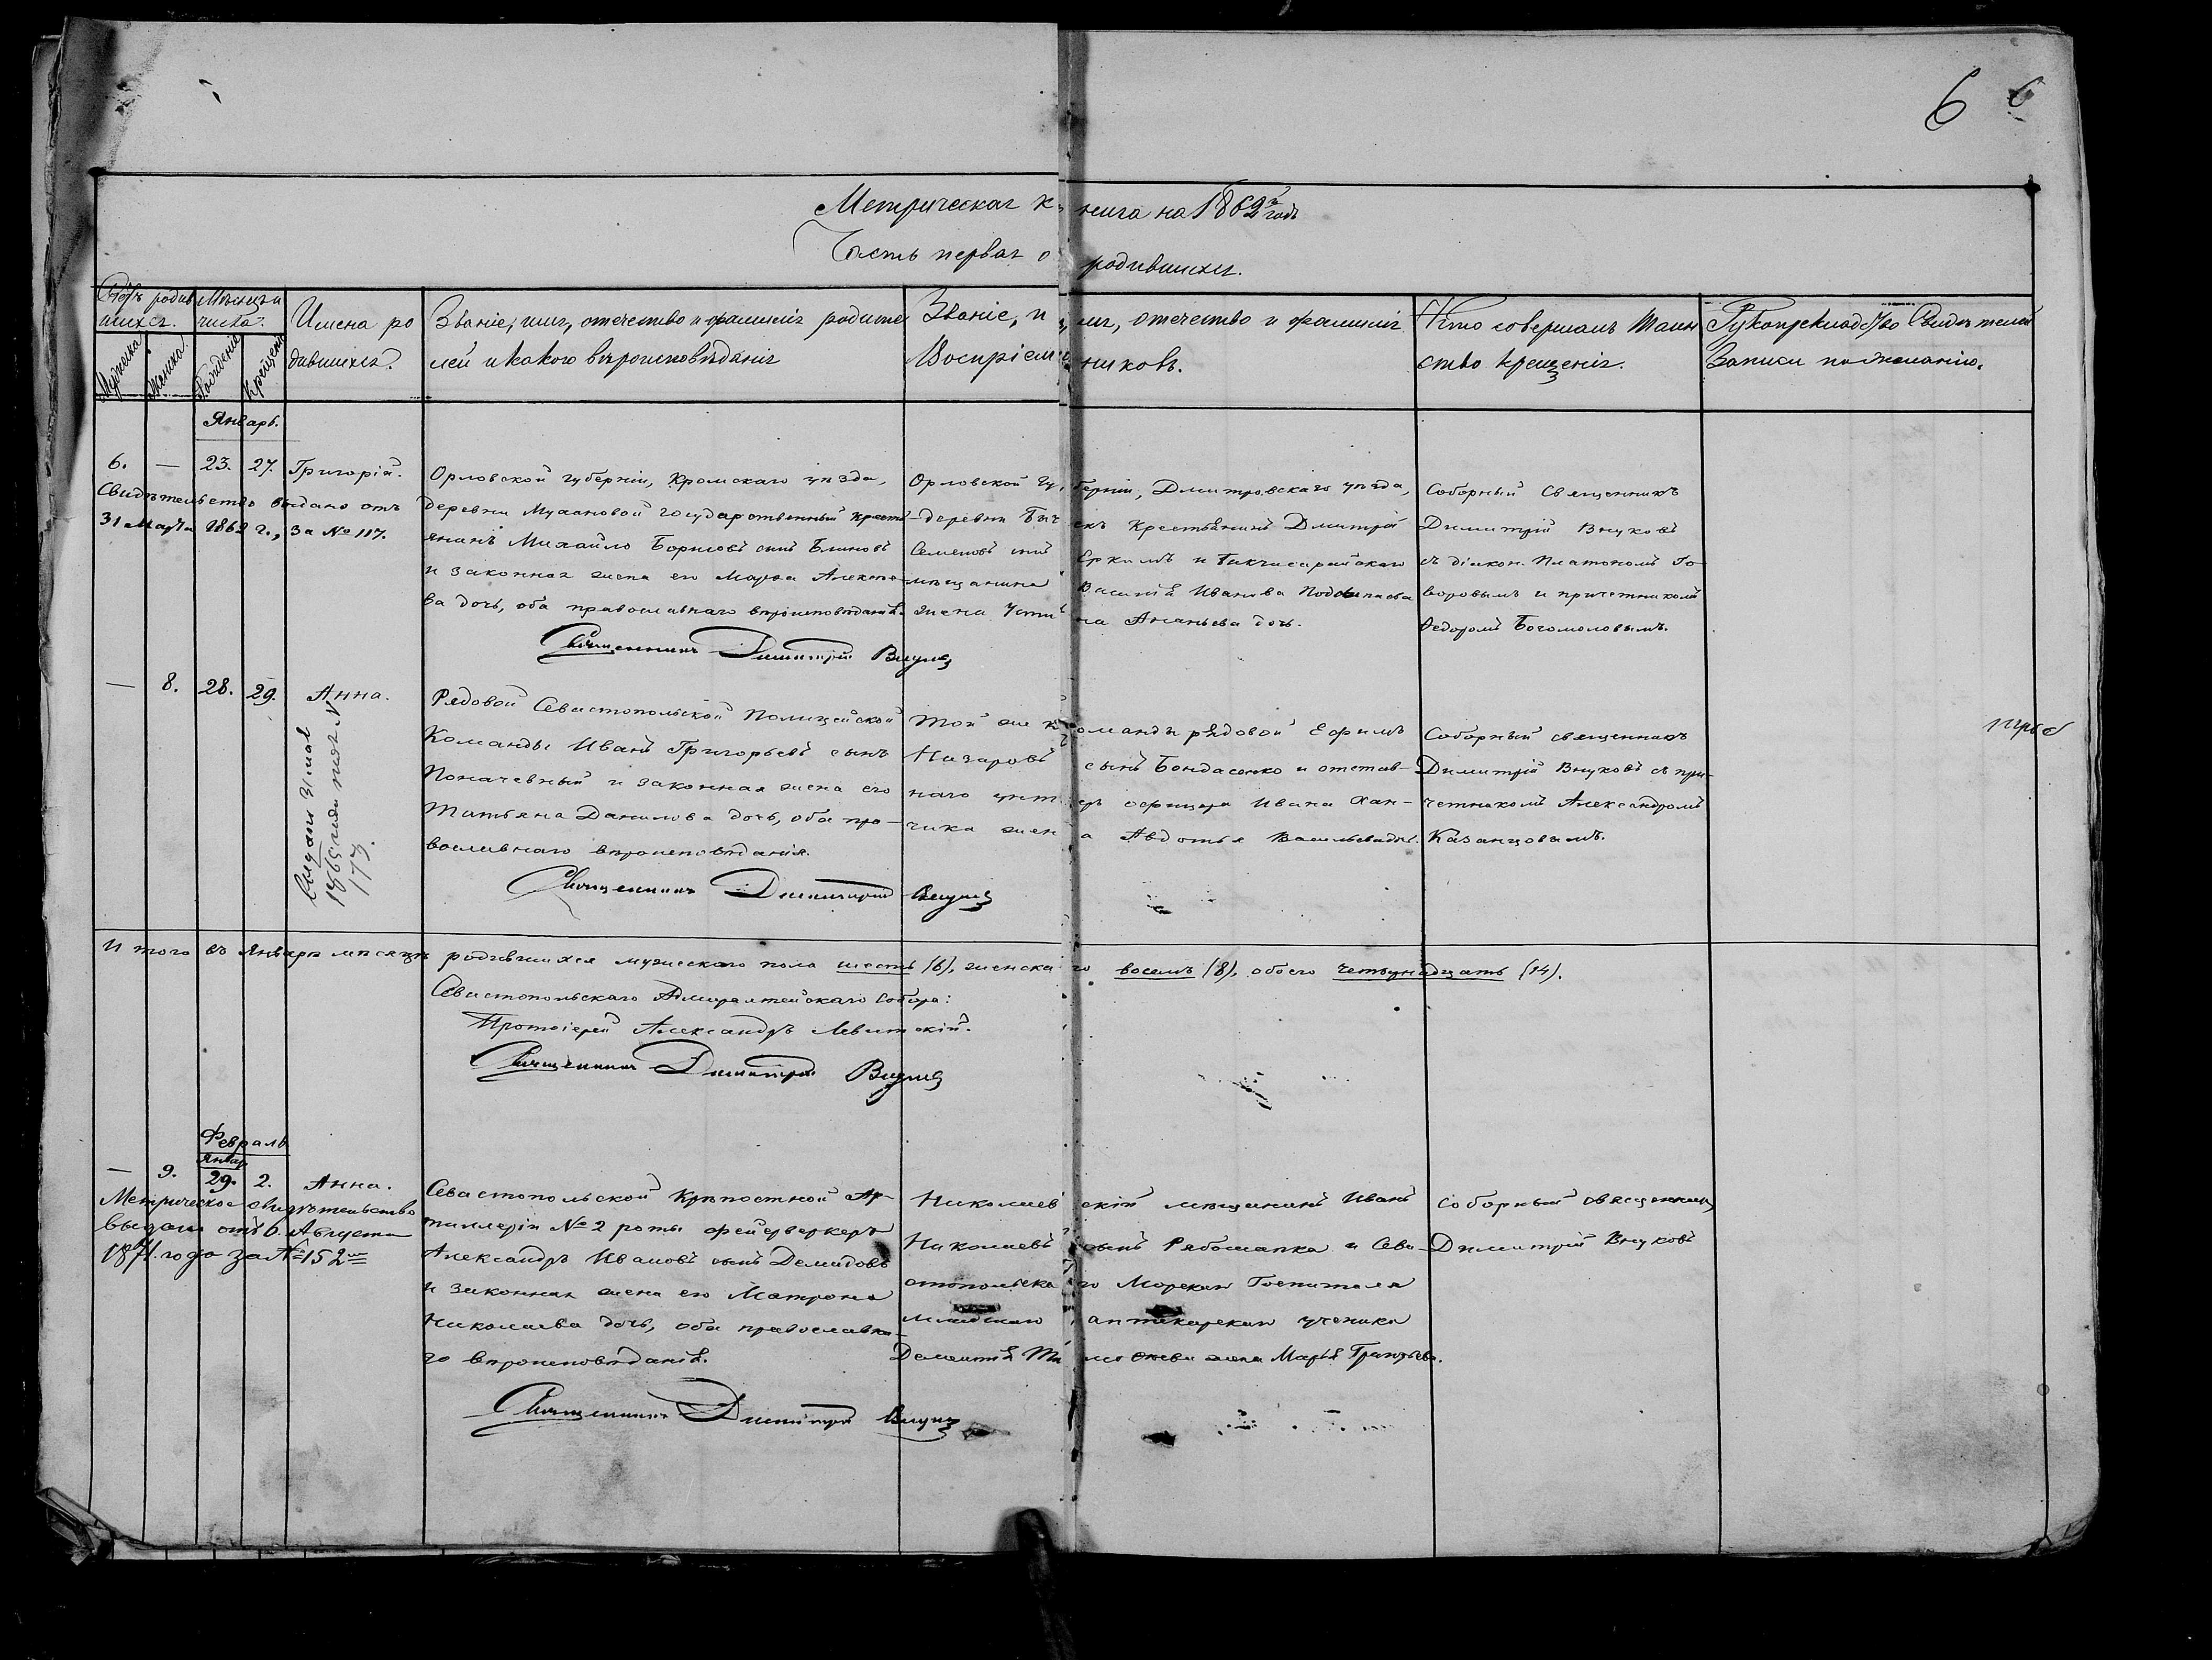 6 6
Метрическая книга на 1869й годъ
Часть первая о родившихся.
Счетъ родив
шихся.
Мужеска.
Женска.
Мѣсяцъ и
числа.
Рожденія
Крещенія
Имена ро
дившихся.
Званіе, имя, отечество и фамилія родите
лей и какого вѣроисповѣданія
Званіе, имя, отечество и фамилія
Воспріемниковъ.
Кто совершалъ Таин
ство крещенія.
Рукоприкладство Свидѣтелей
Записи по желанію.
Январь.
6. — 23. 27. Григорій.
Свидѣтельство выдано отъ
31 Марта 1869 г., за № 117.
Орловской губерніи, Кромскаго уѣзда,
деревни Мухановой государственный кресть
янинъ Михайло Борисовъ сынъ Блиновъ
и законная жена его Марфа Алексѣе-
ва дочь, оба православнаго вѣроисповѣданія.
Священникъ Димитрій Внуковъ
Орловской Губерніи, Дмитровскаго уѣзда,
деревни Крестьянинъ Дмитрій
Семеновъ сынъ и
мѣщанина Василія Иванова
жена Устинa Ананьева дочь.
Соборный Священникъ
Димитрій Внуковъ
съ діакон. Платономъ Го-
воровымъ и причетникомъ
Ѳедоромъ Богомоловымъ.
— 8. 28. 29. Анна.
173.
Рядовой Севастопольской Полицейской
Команды Иванъ Григорьевъ сынъ
Поначевный и законная жена его
Татьяна Данилова дочь, оба пра-
вославнаго вѣроисповѣданія.
Священникъ Димитрій Внуковъ
Той же команды рядовой Ефимъ
Назаровъ сынъ Бондаренко и отстав-
наго унтеръ офицера Ивана Хан-
чика жена Авдотья Васильева доч.
Соборный священникъ
Димитрій Внуковъ съ при-
четникомъ Александромъ
Казанцовымъ.
Итого въ Январѣ мѣсяцѣ родившихся мужескаго пола шесть (6), женскаго восемь (8), обоего четырнадцать (14).
Севастопольскаго Адмиралтейскаго Собора:
Протоіерей Александръ Левитскій.
Священникъ Димитрій Внуковъ
Февраль
Январ.
— 9. 29. 2. Анна.
Метрическое свидѣтельство
выдано отъ 6. Августа
1871. года за № 152
Севастопольской Крѣпостной Ар-
тиллеріи № 2 роты фейерверкеръ
Александръ Ивановъ сынъ Демидовъ
и законная жена его Матрона
Николаева дочь, оба православна-
го вѣроисповѣданія.
Священникъ Димитрій Внуковъ
Николаевскій мѣщанинъ Иванъ
Николаевъ сынъ Рябошапка и Сева-
стопольскаго Морскаго Госпиталя
младшаго аптекарскаго ученика
Дементія Тимофеева жена Марія Григорьева.
Соборный священникъ
Димитрій Внуковъ